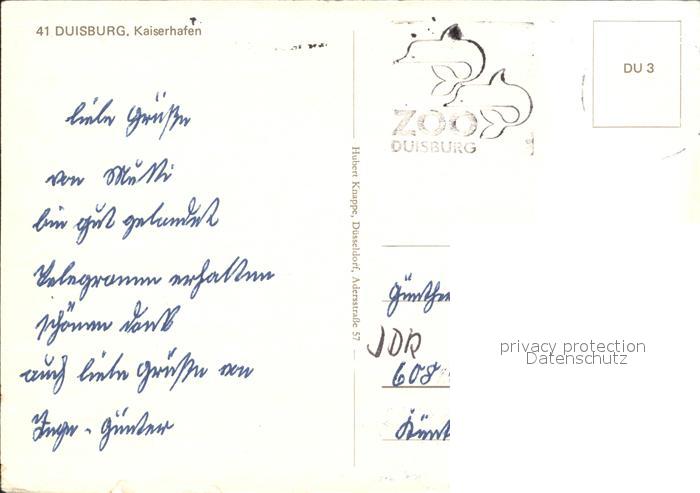 41 DUISBURG, Kaiserhafen
liebe Grüße
von Mutti
bin gut gelandet
Telegramm erhalten
schönen Dank
auch liebe Grüße an
Inge - Günter
Hubert Knappe, Düsseldorf, Adersstraße 57
ZOO
DUISBURG
DU 3
Günther
608
privacy protection
Datenschutz